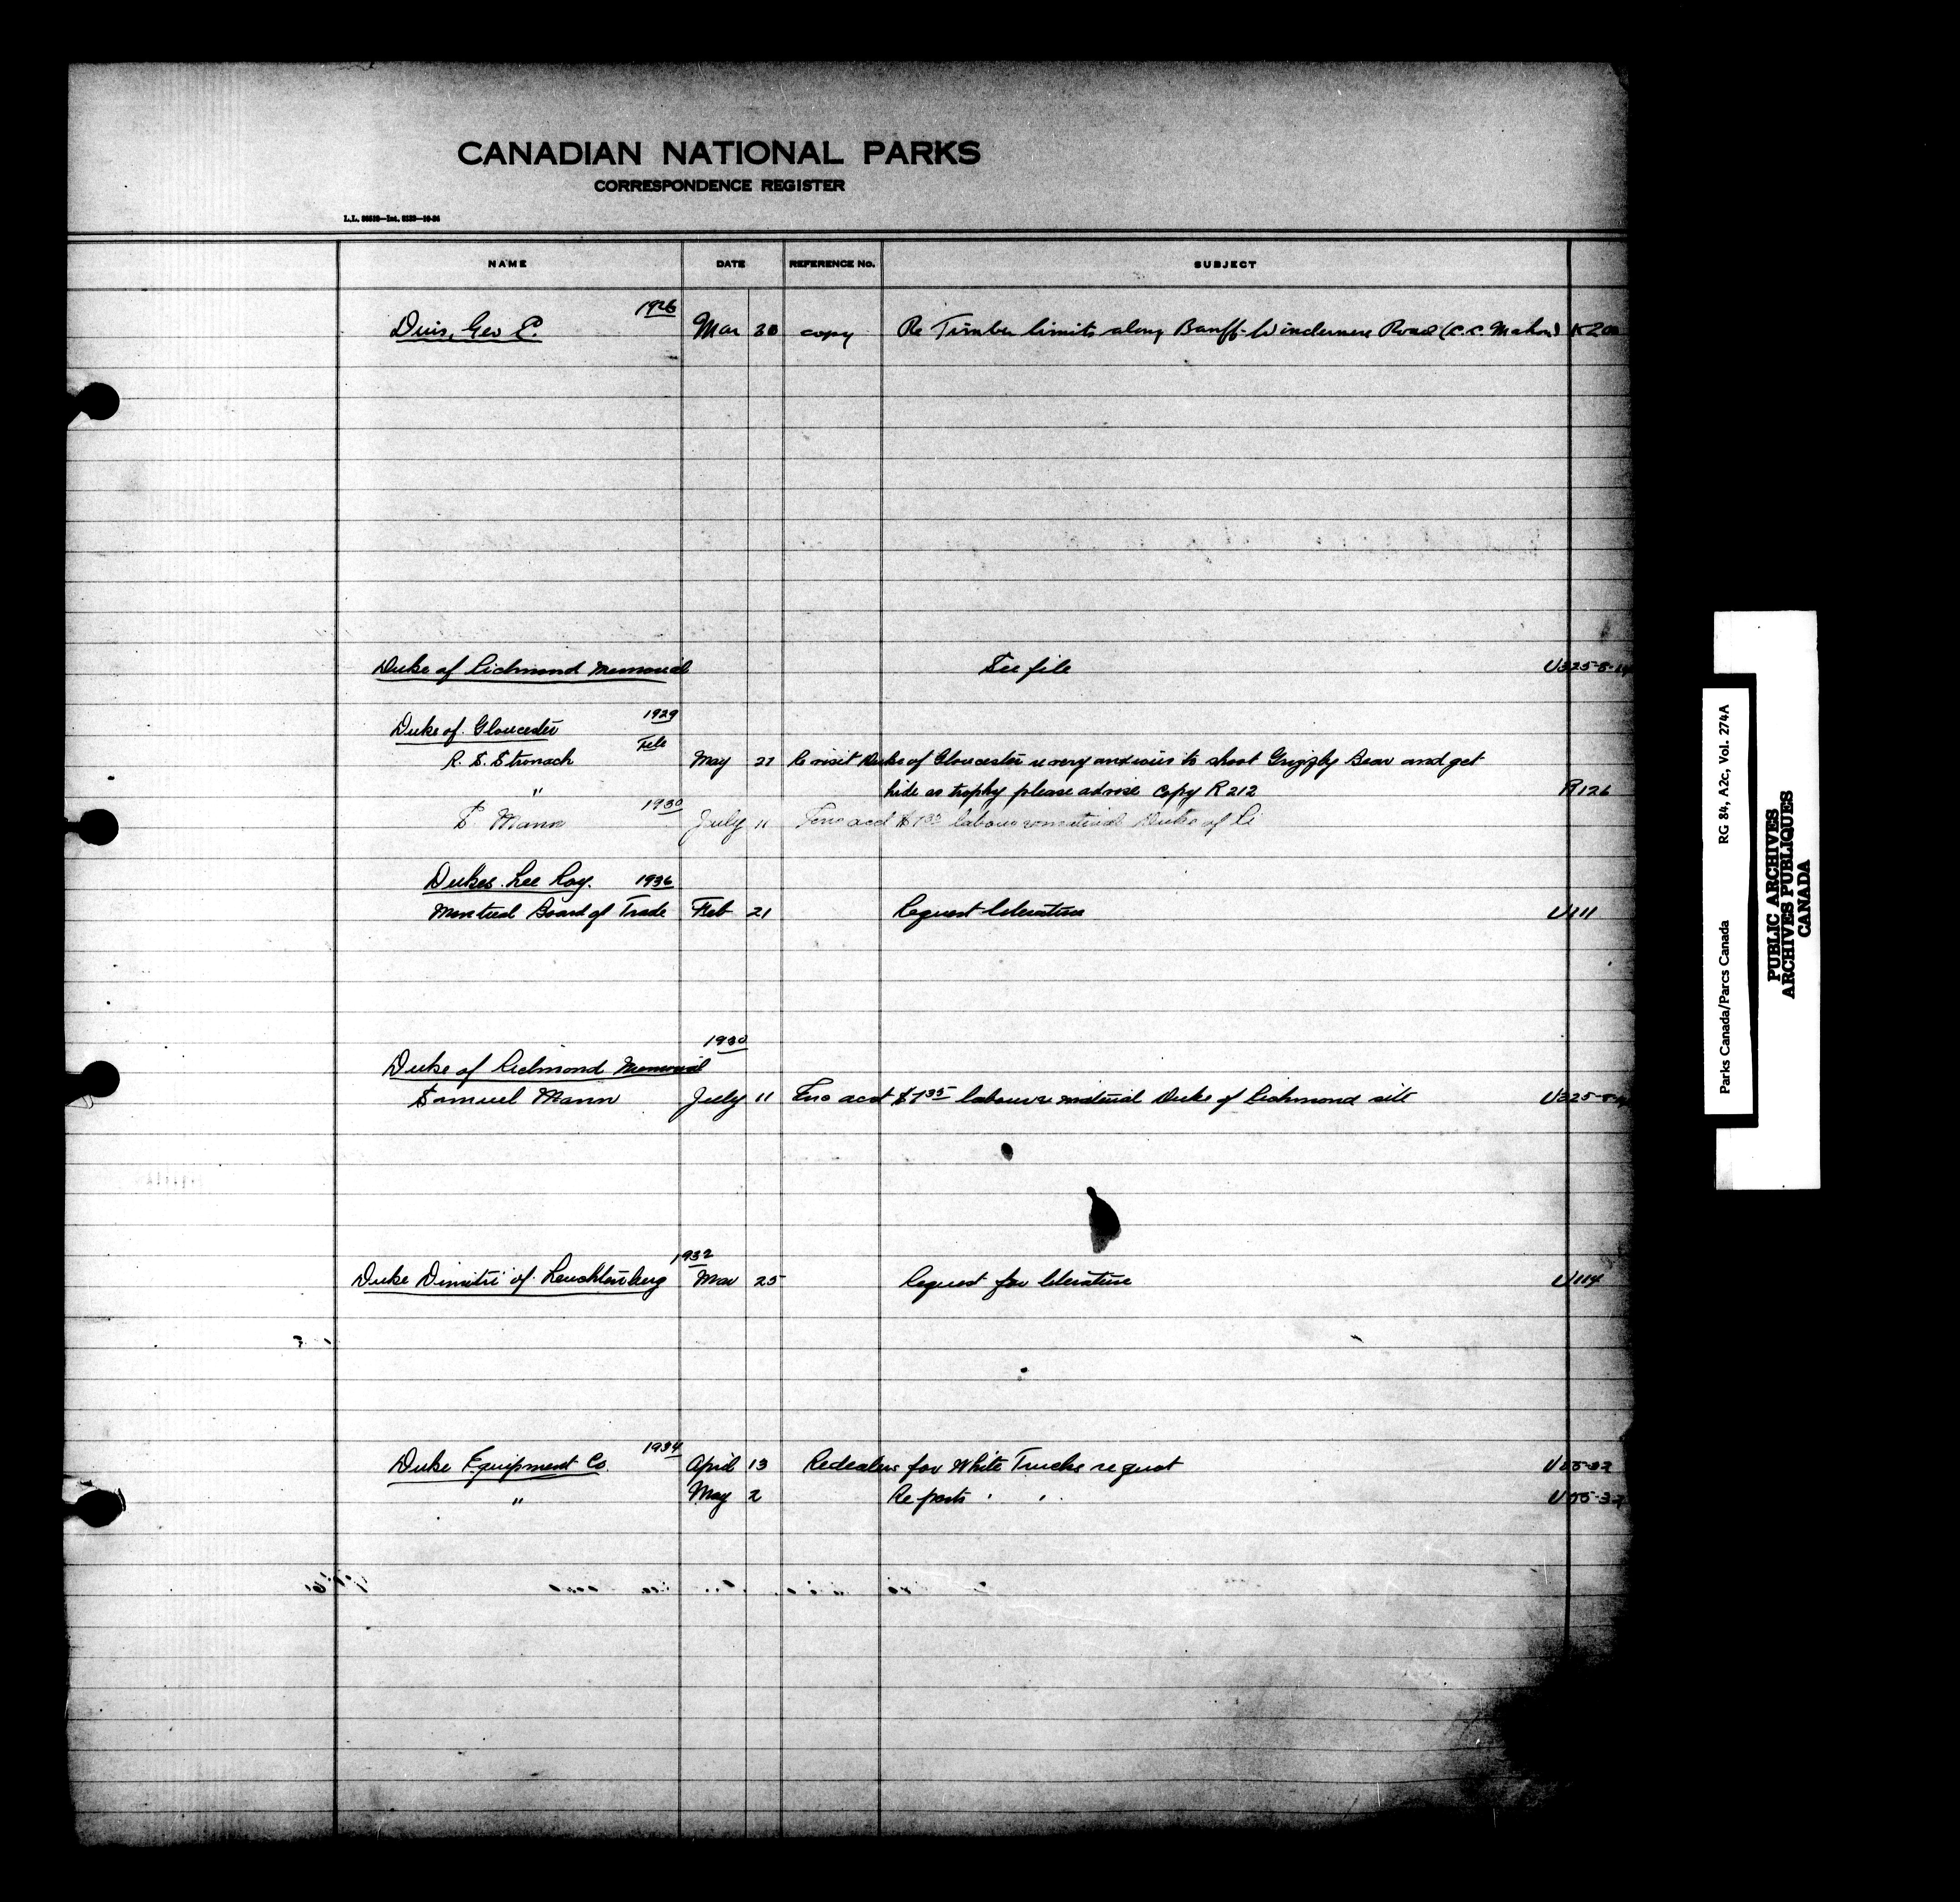 CANADIAN NATIONAL PARKS
CORRESPONDENCE REGISTER
NAME DATE REFERENCE No. SUBJECT
1926
Duis, Geo E. Mar 20 copy Re Timber limits along Banff-Windermere Road (C.C. Mahon) K200
Duke of Richmond Memorial See file U325-8-
Duke of Gloucester 1929
Tele
R. S. Stronach May 21 Re visit Duke of Gloucester is very anxious to shoot Grizzly Bear and get
" hide as trophy please advise copy R212 R126
S Mann 1930 July 11 Enc acct labour material Duke of Ri
Dukes. Lee Roy. 1936
Montreal Board of Trade Feb 21 Request literature U111
1930
Duke of Richmond Memorial
Samuel Mann July 11 Enc acct $7 35 labour material Duke of Richmond site U325-
1932
Duke Dimitri of Leuchtenberg Mar 25 Request for literature U114
1934
Duke Equipment Co. April 13 Re dealers for White Trucks request
" May 2 Re parts ' '
Parks Canada/Parcs Canada RG 84, A2c, Vol. 274A
PUBLIC ARCHIVES
ARCHIVES PUBLIQUES
CANADA